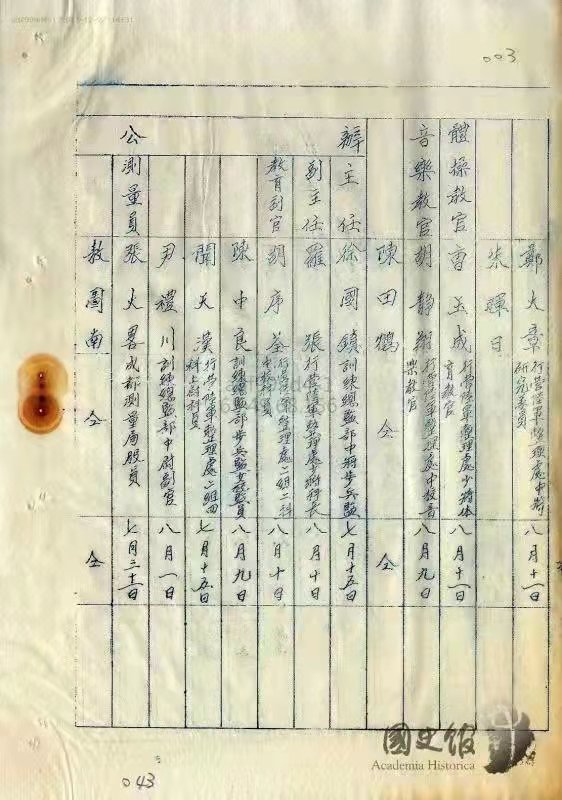 003
鄭大章 行營陸軍整理處中將研究委員 八月十一日
朱暉日
體操教官 曹玉成 行營陸軍整理處少將体育教官 八月十一日
音樂教官 胡静翔 行營陸軍整理處中校音樂教官 八月九日
陳田鶴 仝 仝
辦 主任 徐國鎮 訓練總監部中將步兵監 七月十五日
副主任 羅張 行營陸軍整理處少將科長 八月十日
教育副官 胡序荃 行營陸軍整理處二組二科 八月十日
陳中良 訓練總監部步兵監 八月九日
聞天漢 行營陸軍整理處二組四科上尉科員 七月十五日
尹禮川 訓練總監部中尉副官 八月一日
公 測量員 張火畧 成都測量局股員 七月二十一日
敖圖南 仝 仝
國史館
Academia Historica
043